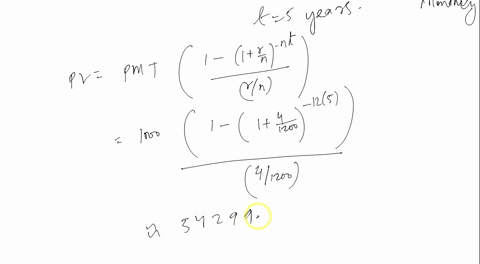 t=5 years.
PV = PMT ( (1 - (1 + r/n)^-nt) / (r/n) )
= 1000 ( (1 - (1 + 4/1200)^-12(5)) ) / (4/1200)
54299.